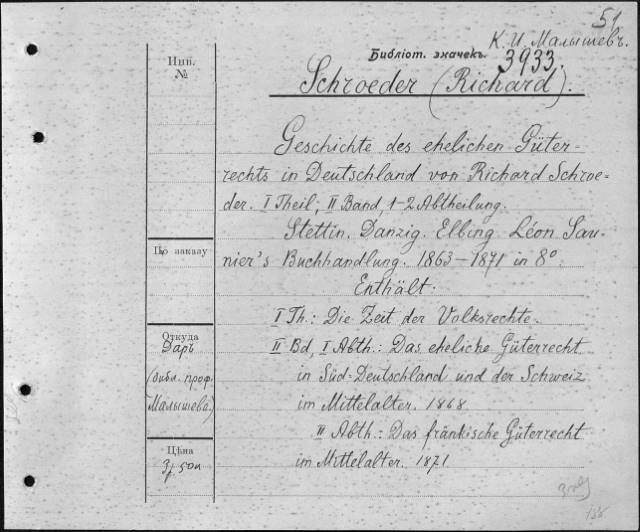 51
К. И. Малышевъ.
Библіот. значекъ.
3933.
Schroeder (Richard).
Инв.
№
Geschichte des ehelichen Güter-
rechts in Deutschland von Richard Schroe-
der. I Theil; II Band, 1-2 Abtheilung.
Stettin. Danzig. Elbing. Léon Sau-
nier's Buchhandlung. 1863-1871 in 8º.
Enthält.
По заказу
I Th.: Die Zeit der Volksrechte.
II Bd, I Abth.: Das eheliche Güterrecht
in Süd-Deutschland und der Schweiz
im Mittelalter. 1868.
II Abth.: Das fränkische Güterrecht
im Mittelalter. 1871.
Откуда
Даръ
(библ. проф.
Малышева)
Цѣна
3 р. 50 к